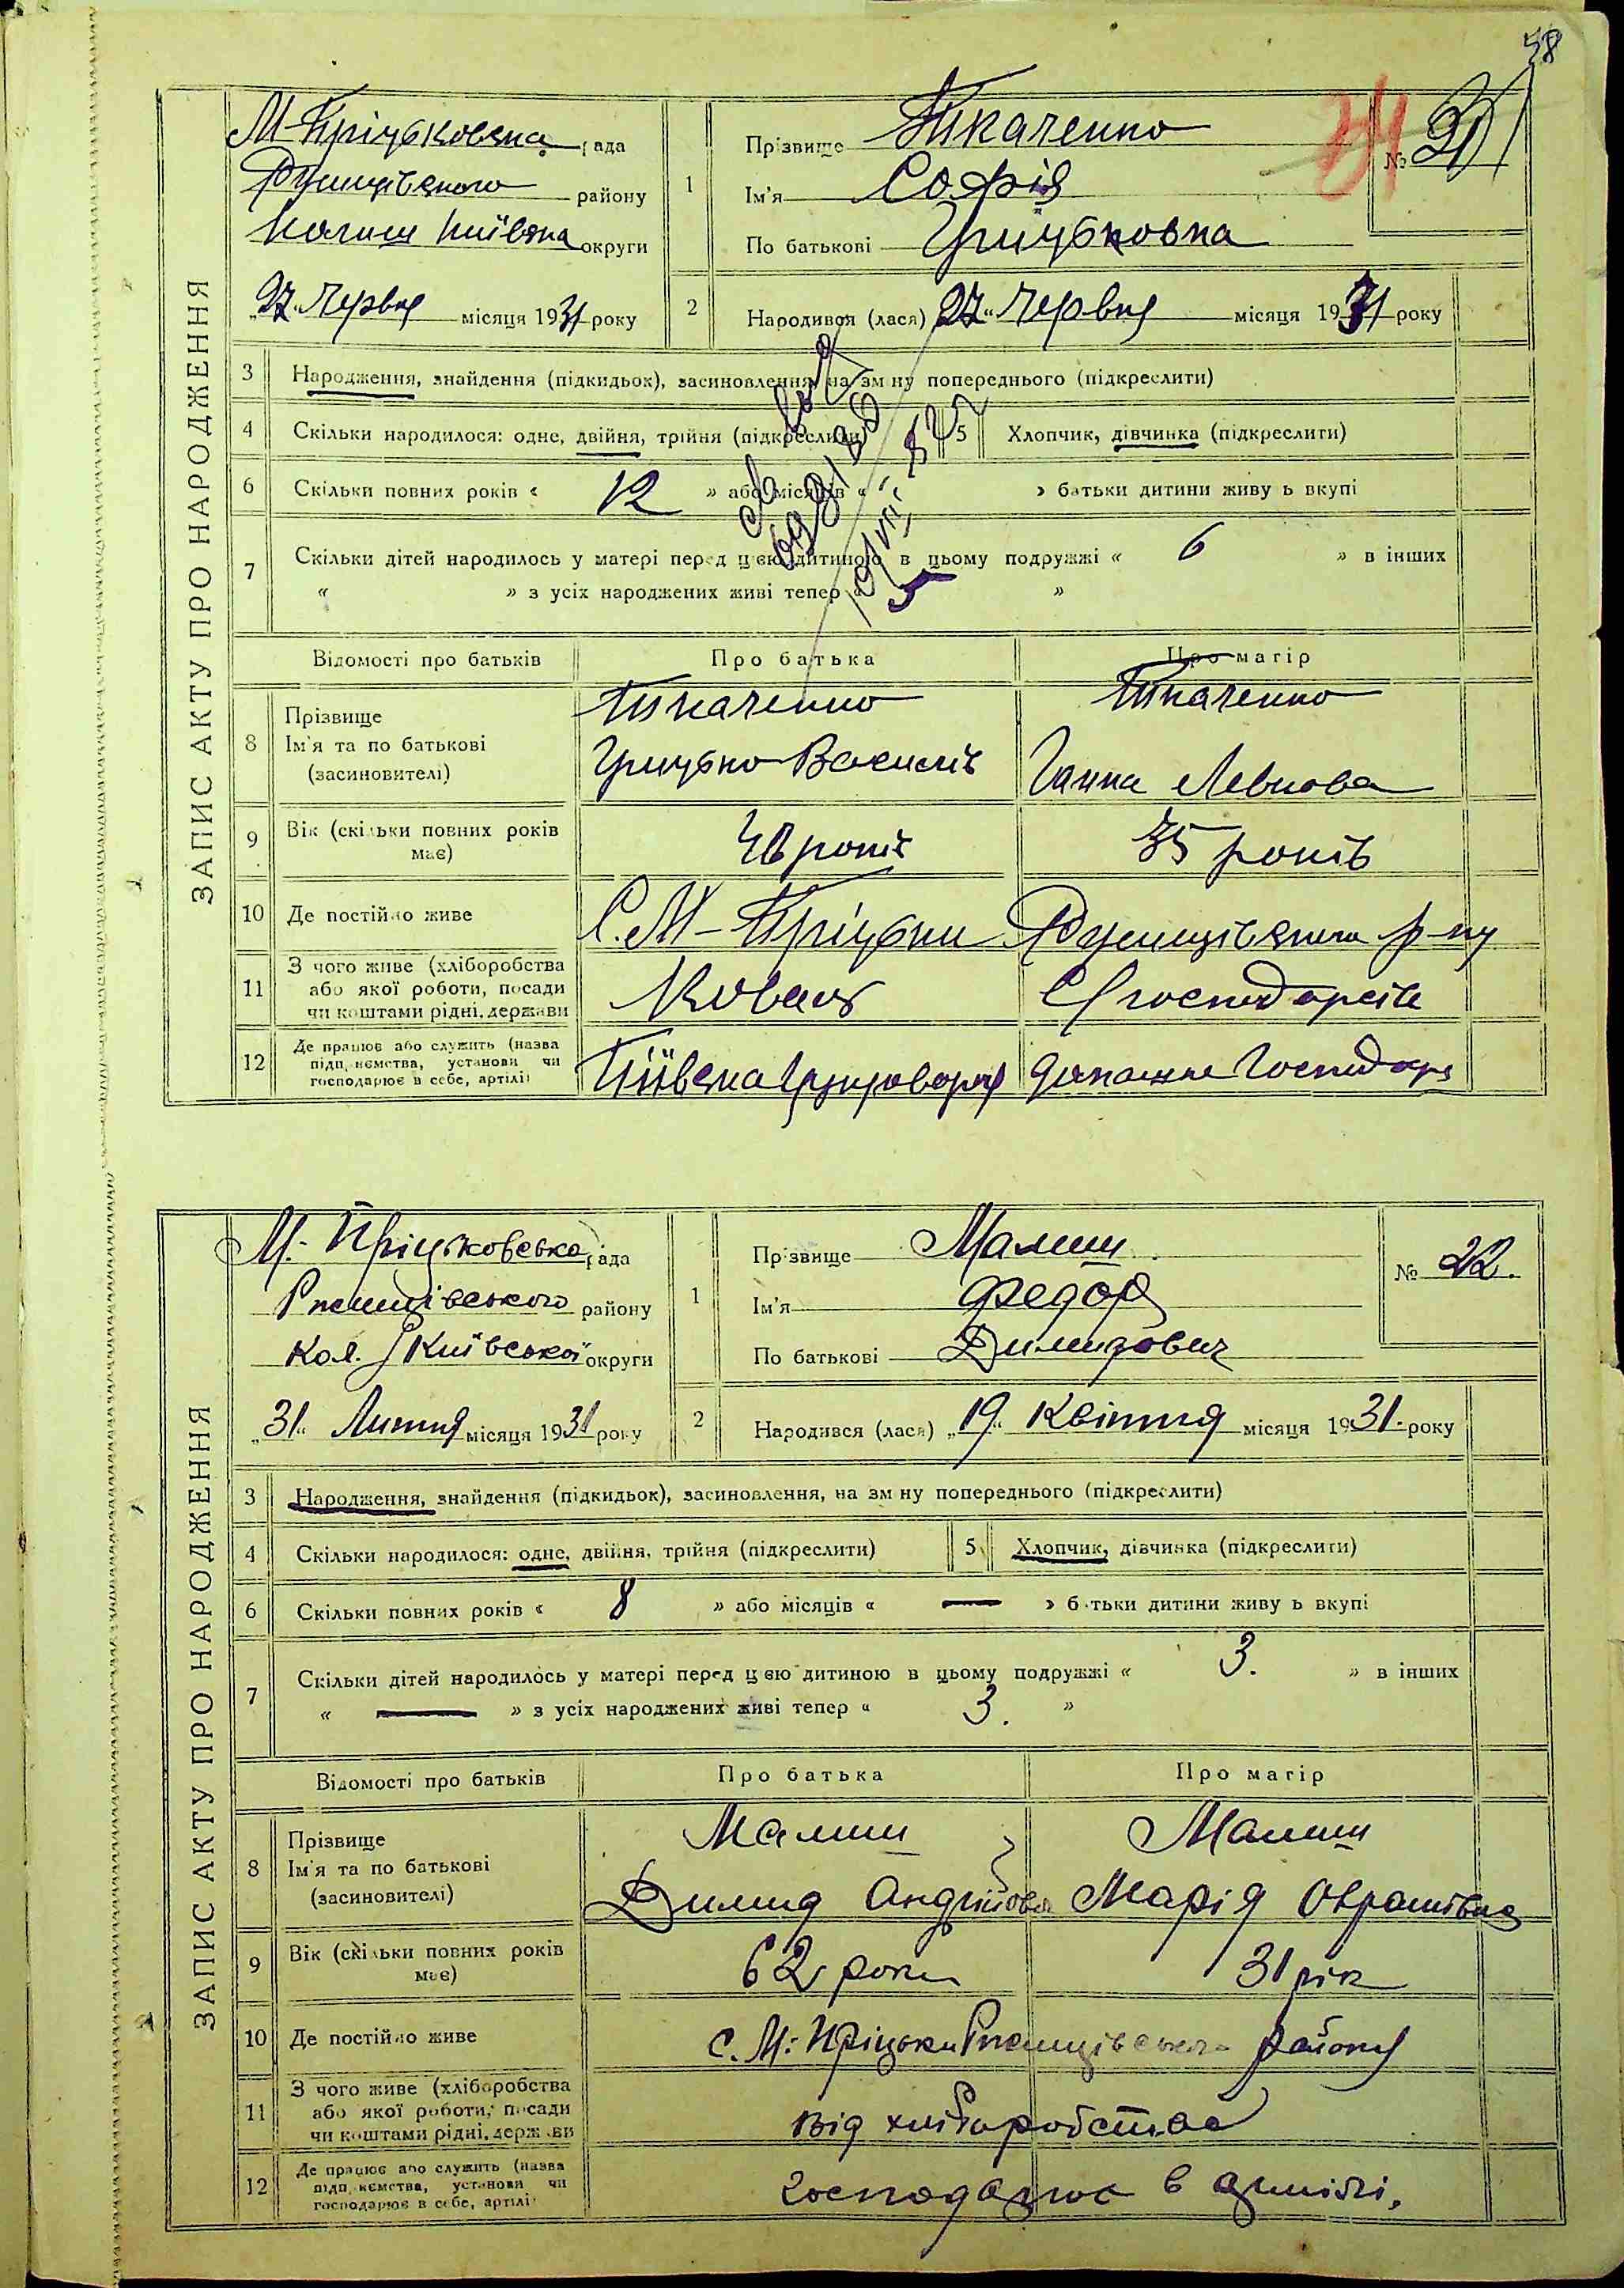 58
ЗАПИС АКТУ ПРО НАРОДЖЕННЯ
М-Пріцьковська рада
Ржищівського району
Колиш Київська округи
"27" Червня місяця 1931 року
1
Прізвище Ткаченко
Ім'я Софія
По батькові Грицьковна
№
2
Народився (лася) "27" Червня місяця 1931 року
3 Народження, знайдення (підкидьок), засиновлення, на зміну попереднього (підкреслити)
4 Скільки народилося: одне, двійня, трійня (підкреслити)
5 Хлопчик, дівчинка (підкреслити)
6 Скільки повних років « 12 » або місяців « » батьки дитини живуть вкупі
7 Скільки дітей народилось у матері перед цією дитиною в цьому подружжі « 6 » в інших
« » з усіх народжених живі тепер « 5 »
Відомості про батьків Про батька Про матір
8 Прізвище
Ім'я та по батькові
(засиновителі)
Ткаченко
Грицько Василів
Ткаченко
Ганна Левкова
9 Вік (скільки повних років
має)
років
35 років
10 Де постійно живе
С. М-Пріцьки Ржищівського р-ну
11 З чого живе (хліборобства
або якої роботи, посади
чи коштами рідні, держави
Коваль
12 Де працює або служить (назва
підприємства, установи чи
господарює в себе, артілі)
домашнє
ЗАПИС АКТУ ПРО НАРОДЖЕННЯ
М.-Пріцьковська рада
Ржищівського району
Кол. Київської округи
"31" Липня місяця 1931 року
1
Прізвище Малиш
Ім'я Федор
По батькові Димидович
№ 22.
2
Народився (лася) "19" Квітня місяця 1931. року
3 Народження, знайдення (підкидьок), засиновлення, на зміну попереднього (підкреслити)
4 Скільки народилося: одне, двійня, трійня (підкреслити)
5 Хлопчик, дівчинка (підкреслити)
6 Скільки повних років « 8 » або місяців « — » батьки дитини живуть вкупі
7 Скільки дітей народилось у матері перед цією дитиною в цьому подружжі « 3. » в інших
« — » з усіх народжених живі тепер « 3. »
Відомості про батьків Про батька Про матір
8 Прізвище
Ім'я та по батькові
(засиновителі)
Малиш
Димид Андрійов
Малиш
Марія Оврамівна
9 Вік (скільки повних років
має)
62 роки
31 рік
10 Де постійно живе
с. М: Пріцьки Ржищівського району
11 З чого живе (хліборобства
або якої роботи, посади
чи коштами рідні, держави
від хліборобства
12 Де працює або служить (назва
підприємства, установи чи
господарює в себе, артілі)
господарює в артілі.